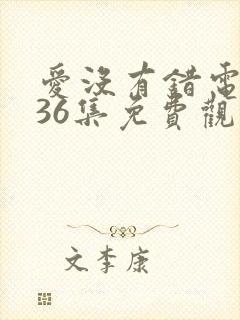 愛沒有錯電
36集免費觀
文李康